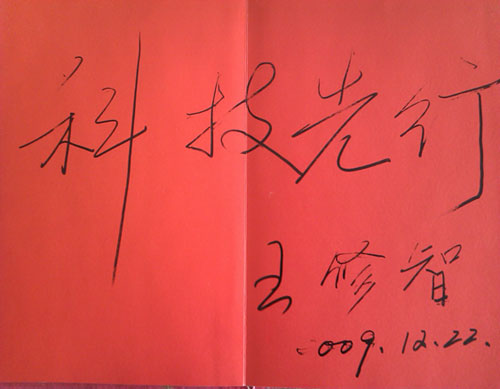 科技先行
王修智
2009.12.22.